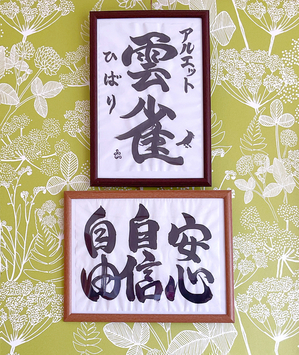 アルエット
雲雀
ひばり
安心
自信
自由